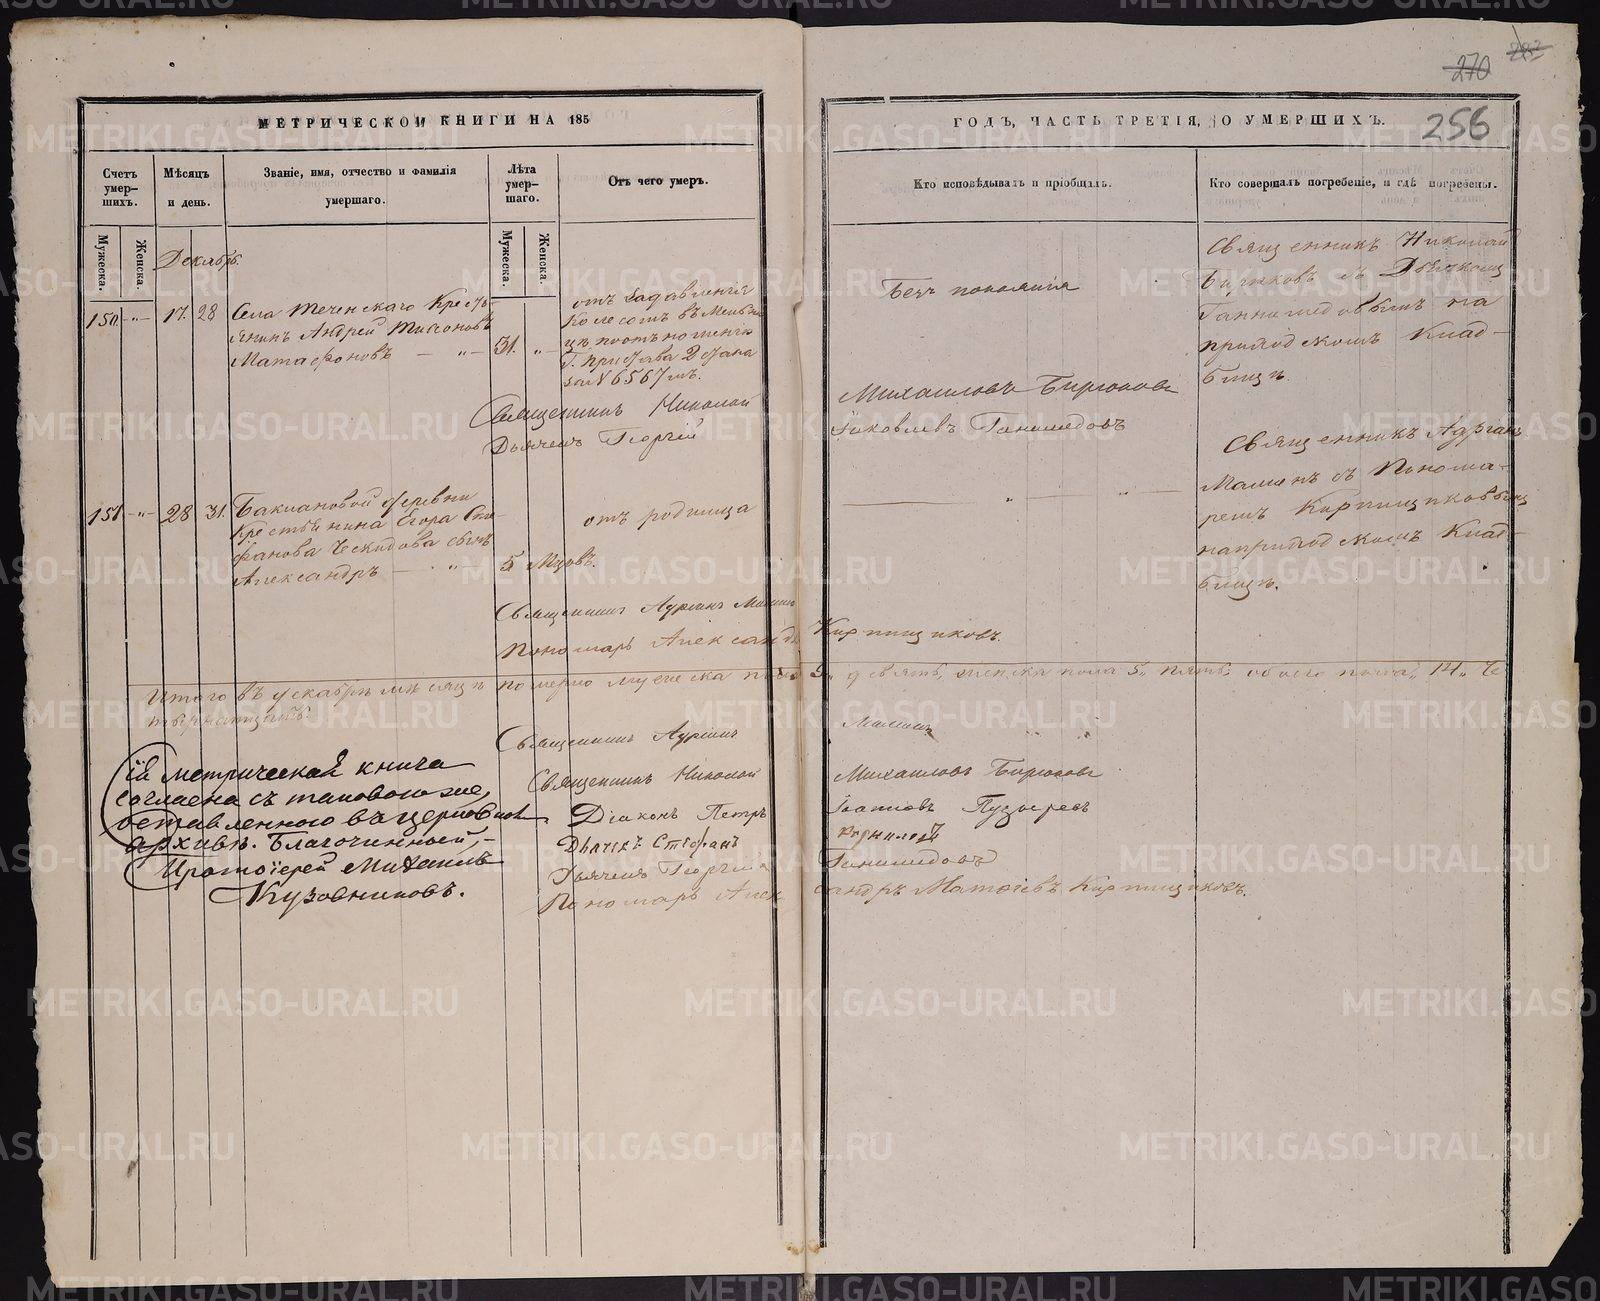 270
256
МЕТРИЧЕСКОЙ КНИГИ НА 185
ГОДЪ, ЧАСТЬ ТРЕТІЯ, О УМЕРШИХЪ.
Счетъ умер-
шихъ.
Мѣсяцъ
и день.
Званіе, имя, отчество и фамилія
умершаго.
Лѣта
умер-
шаго.
Отъ чего умеръ.
Кто исповѣдывалъ и пріобщалъ.
Кто совершалъ погребеніе, и гдѣ погребены.
Мужеска.
Женска.
Мужеска.
Женска.
Декабрь.
150 - „ - 17. 28
Села Теченскаго Кресть-
янинъ Андрей
Матафоновъ — „ —
51. „
отъ задавленія
колесомъ въ
Г. Пристава 2 Стана
за № 6567 мъ.
Безъ покаянія
Священникъ Николай
Бирюковъ съ Дьячкомъ
Ганимедовымъ на
приходскомъ Клад-
бищѣ.
Священникъ Николай Михаиловъ Бирюковъ
Дьячекъ Георгій Іаковлевъ Ганимедовъ
151 - „ - 28 31.
Баклановой деревни
Крестьянина Егора Сте-
фанова Ческидова сынъ
Александръ — „ —
5 Мцовъ.
отъ родимца
— „ — „ —
Священникъ
съ Понома-
ремъ Кирпищиковымъ
на приходскомъ Клад-
бищѣ.
Священникъ
Пономарь Александръ Кирпищиковъ.
Итого въ декабрѣ мѣсяцѣ померло мужеска пола 9„ девять, женска пола 5„ пять, обоего пола„ 14„ че
тырнатцать.
Священникъ
Священникъ Николай Михаиловъ Бирюковъ
Діаконъ Петръ Іоанновъ Пузыревъ
Дьячекъ Стефанъ
Дьячекъ Георгій Ганимедовъ
Пономарь Александръ Матѳіевъ Кирпищиковъ.
Сія метрическая книга
согласна съ таковою же,
оставленною въ церковномъ
архивѣ. Благочинный,-
Протоіерей Михаилъ
Кузовниковъ.
METRIKI.GASO-URAL.RU